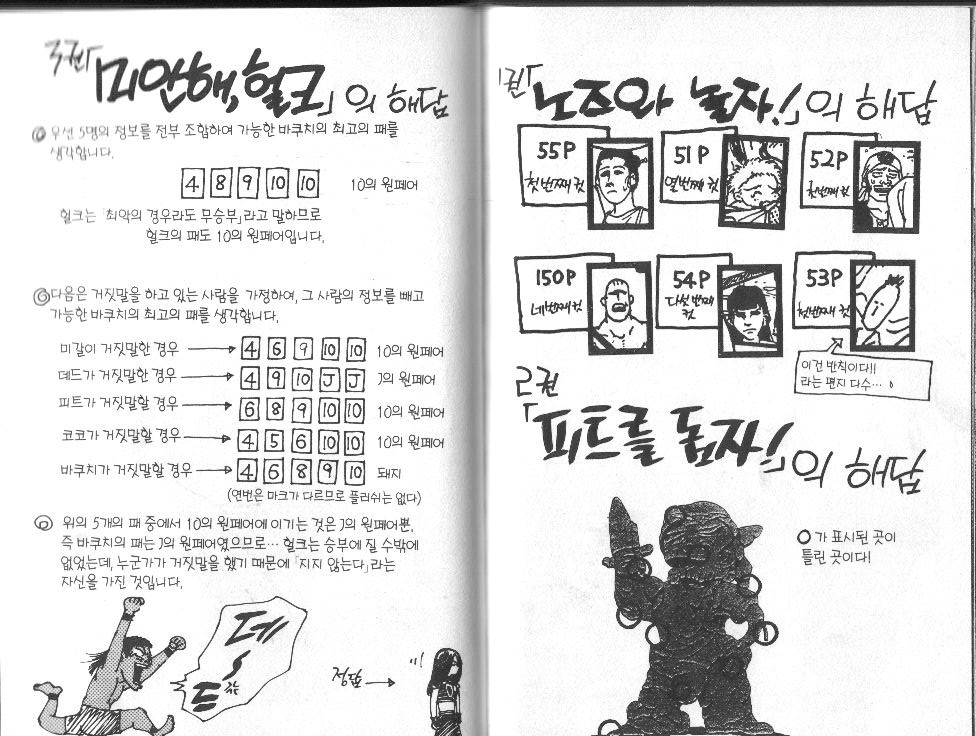 3권
「미안해, 헐크」의 해답
◎ 우선 5명의 정보를 전부 조합하여 가능한 바쿠치의 최고의 패를
생각합니다.
4 8 9 10 10 10의 원페어
헐크는 「최악의 경우라도 무승부」라고 말하므로
헐크의 패도 10의 원페어입니다.
◎ 다음은 거짓말을 하고 있는 사람을 가정하여, 그 사람의 정보를 빼고
가능한 바쿠치의 최고의 패를 생각합니다.
미갈이 거짓말한 경우 → 4 6 9 10 10 10의 원페어
데드가 거짓말한 경우 → 4 9 10 J J J의 원페어
피트가 거짓말할 경우 → 6 8 9 10 10 10의 원페어
코코가 거짓말할 경우 → 4 5 6 10 10 10의 원페어
바쿠치가 거짓말할 경우 → 4 6 8 9 10 돼지
(연번은 마크가 다르므로 플러쉬는 없다)
◎ 위의 5개의 패 중에서 10의 원페어에 이기는 것은 J의 원페어뿐,
즉 바쿠치의 패는 J의 원페어였으므로… 헐크는 승부에 질 수밖에
없었는데, 누군가가 거짓말을 했기 때문에 「지지 않는다」라는
자신을 가진 것입니다.
데
드
정답 →
1권
「노즈와 놀자!」의 해답
55P
첫번째 컷
51P
열번째 컷
52P
첫번째 컷
150P
네번째 컷
54P
다섯번째
컷
53P
첫번째 컷
이건 반칙이다!!
라는 편지 다수…
2권
「피트를 돕자!」의 해답
○가 표시된 곳이
틀린 곳이다!